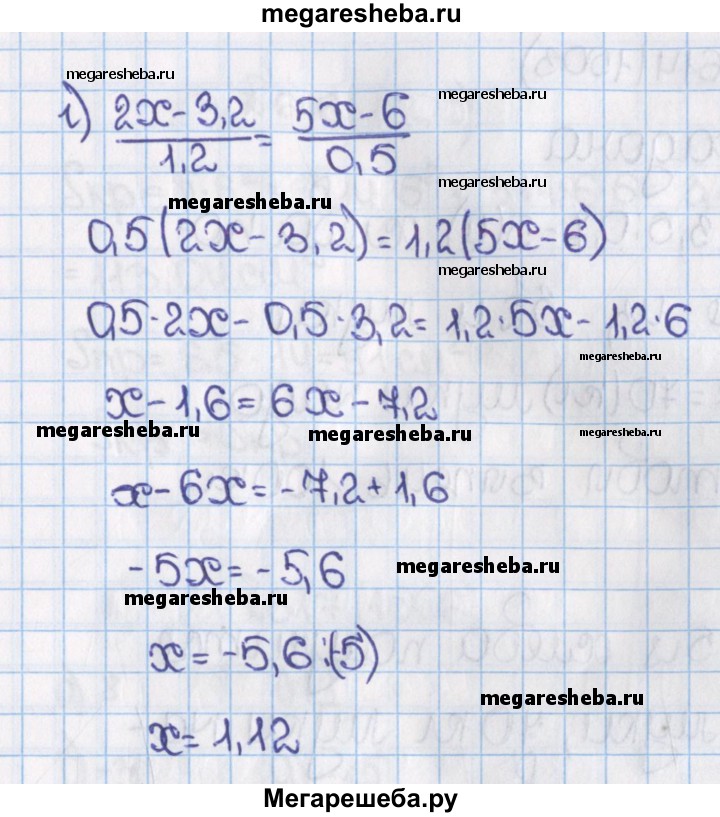 megaresheba.ru
megaresheba.ru
megaresheba.ru
1) (2x-3,2)/1,2 = (5x-6)/0,5
megaresheba.ru
megaresheba.ru
0,5(2x-3,2)=1,2(5x-6)
megaresheba.ru
0,5·2x-0,5·3,2=1,2·5x-1,2·6
megaresheba.ru
x-1,6=6x-7,2
megaresheba.ru
megaresheba.ru
megaresheba.ru
x-6x=-7,2+1,6
-5x=-5,6
megaresheba.ru
megaresheba.ru
x=-5,6:(-5)
megaresheba.ru
x=1,12
Мегарешеба.ру